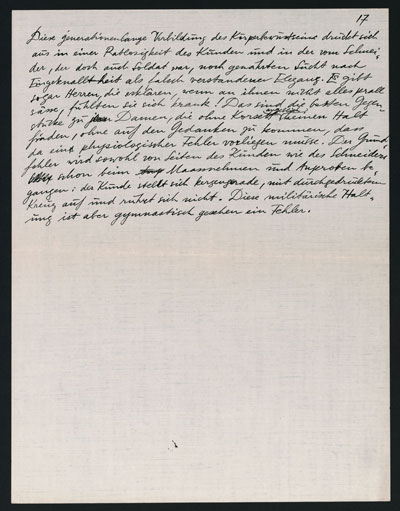 17
Diese generationenlange Verbildung des Körperbewusstseins drückt sich
aus in einer Ratlosigkeit des Kunden und in der vom Schnei-
der, der doch auch Soldat war, noch genährten Sucht nach
Eingeknalltheit als falsch verstandener Eleganz. Es gibt
sogar Herren, die erklären, wenn an ihnen nicht alles prall
sässe, fühlten sie sich krank! Das sind die besten Gegen-
stücke zu Damen, die ohne Korsett keinen Halt
finden, ohne auf den Gedanken zu kommen, dass
da ein physiologischer Fehler vorliegen müsse. Der Grund-
fehler wird sowohl von Seiten des Kunden wie des Schneiders
schon beim Maassnehmen und Anproben be-
gangen: der Kunde stellt sich kerzengerade, mit durchgedrücktem
Kreuz auf und rührt sich nicht. Diese militärische Halt-
ung ist aber gymnastisch gesehen ein Fehler.